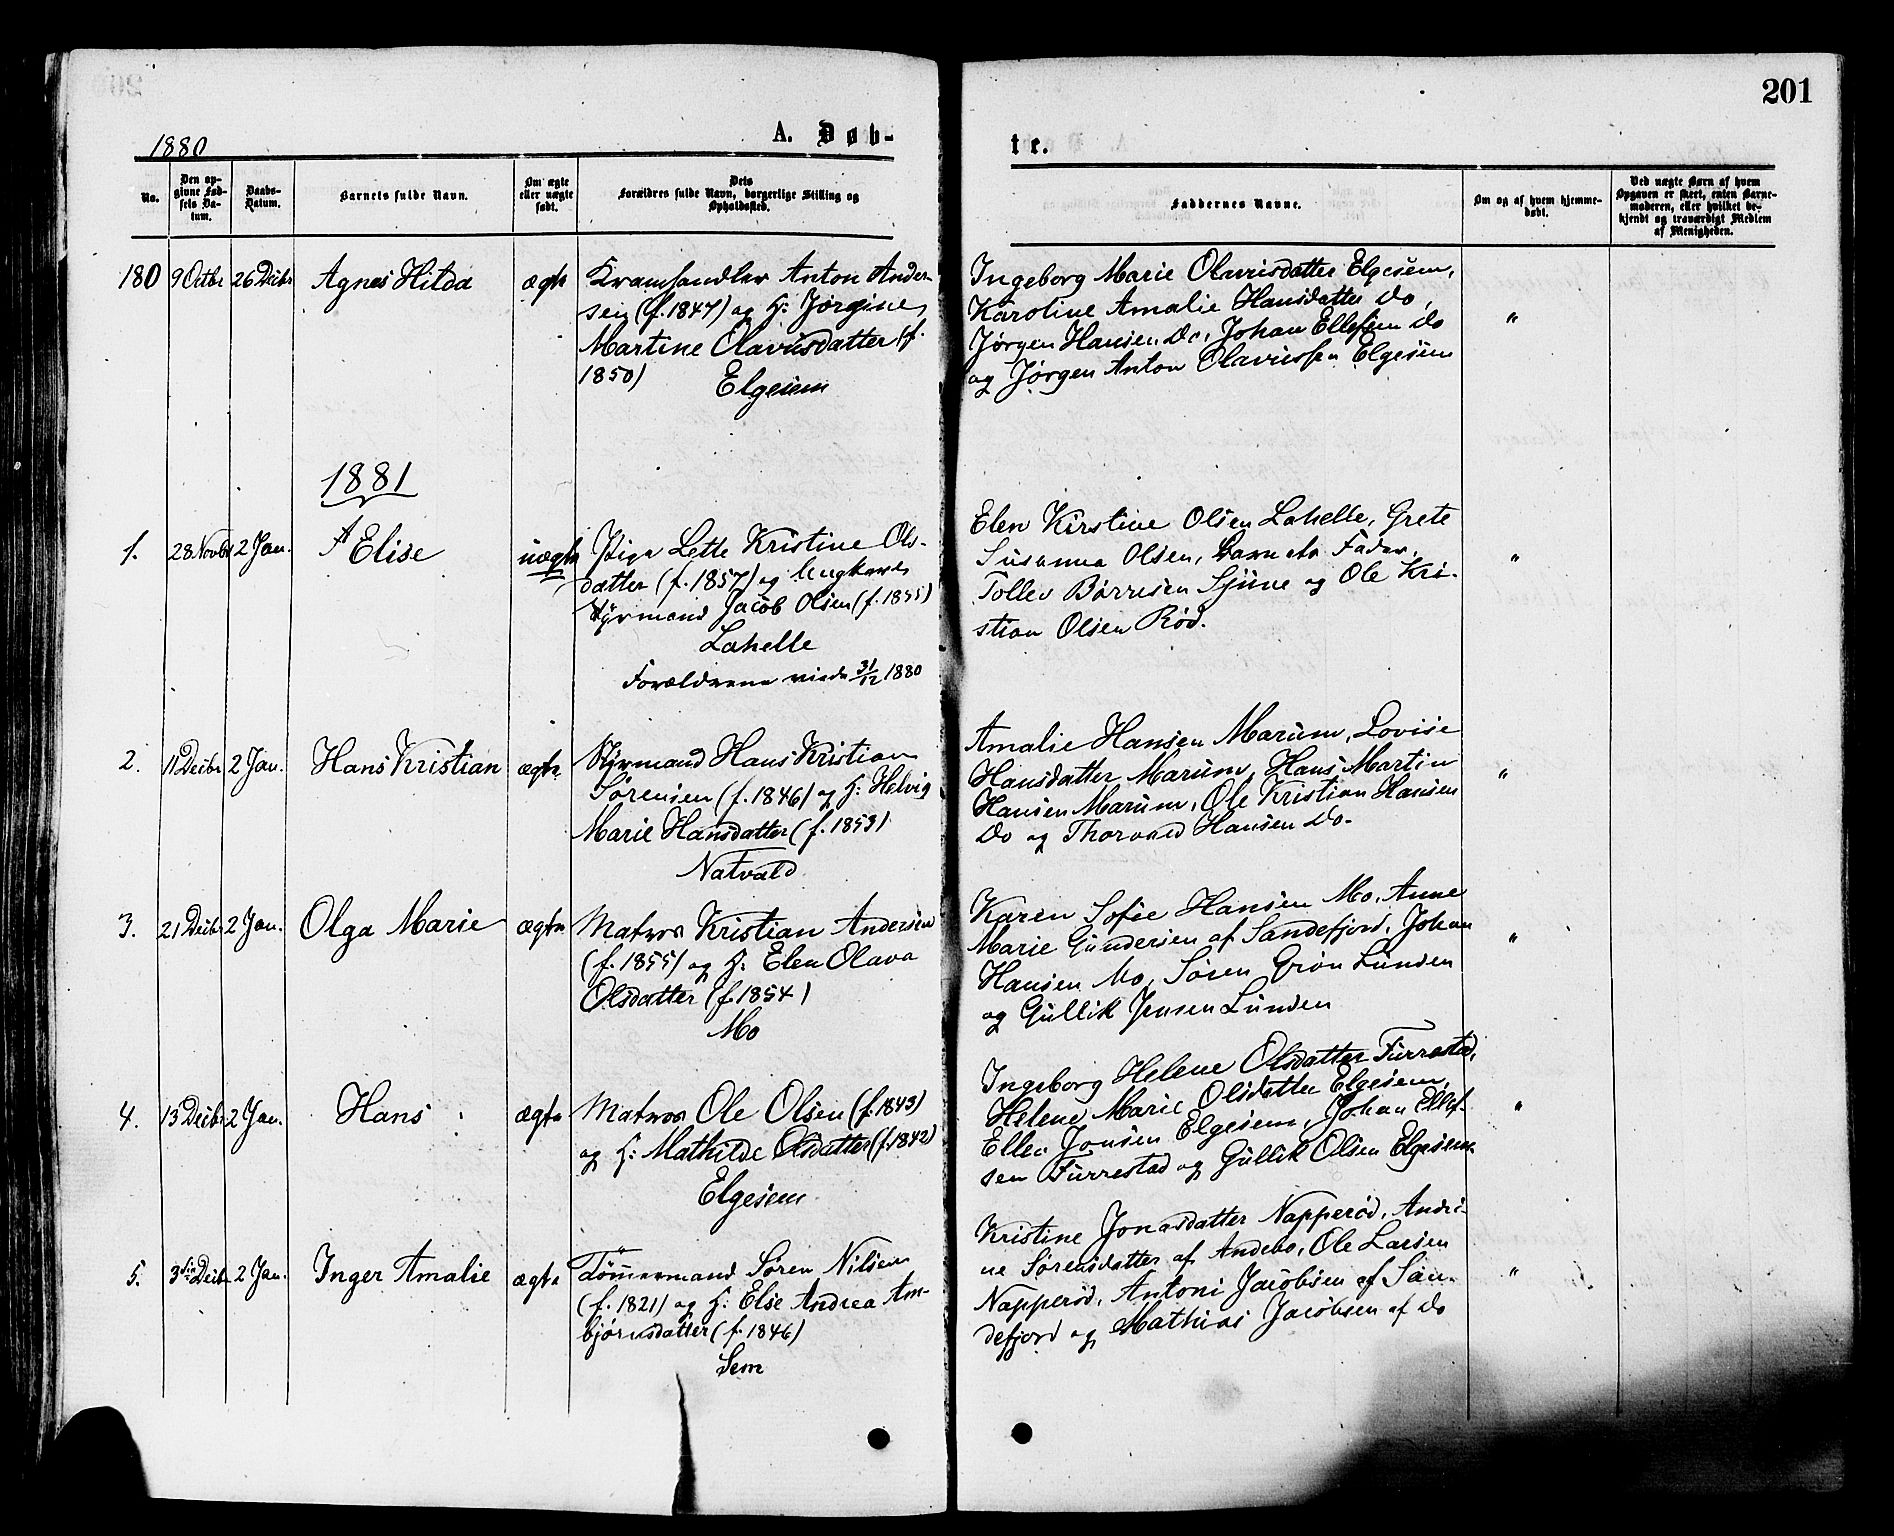 201
1880
A. Døb-
te.
No.
Den op-
givne Fød-
sels Da-
tum.
Daabs-
Datum.
Barnets fulde Navn.
Om ægte
eller uægte
født.
Dets
Forældres fulde Navn, borgerlige Stilling og
Opholdssted.
Faddernes Navne.
Om og af hvem hjemme-
døbt.
Ved uægte Børn af hvem
Opgaven er skeet, enten Barne-
moderen, eller hvilket be-
kjendt og troværdigt Medlem
af Menigheden.
180 9 Octbr 26 Decbr Agnes Hilda ægte
Kramhandler Anton Ander-
sen (f. 1847) og H: Jørgine
Martine Olavusdatter (f.
1850)
Elgesem
Ingeborg Marie Olavusdatter Elgesem,
Karoline Amalie Hansdatter Do,
Jørgen Hansen Do, Johan Ellefsen Do
og Jørgen Anton Olaviessen Elgesem
"
1881
1. 28 Novbr 2 Jan. Elise uægte
Pige Lette Kristine Ols-
datter (f. 1857) og Ungkarl
Styrmand Jacob Olsen (f. 1855)
Lahelle
Forældrene viede 31/12 1880
Elen Kirstine Olsen Lahelle, Grete
Susanna Olsen, Barnets Fader,
Tollev Börresen Sjüne og Ole Kri-
stian Olsen Röd.
"
2. 11 Decbr 2 Jan. Hans Kristian ægte
Styrmand Hans Kristian
Sørensen (f. 1846) og H: Helvig
Marie Hansdatter (f. 1853)
Natvald
Amalie Hansen Marum, Lovise
Hansdatter Marum, Hans Martin
Hansen Marum, Ole Kristian Hansen
Do og Thorvald Hansen Do.
"
3. 21 Decbr 2 Jan. Olga Marie ægte
Matros Kristian Andersen
(f. 1855) og H: Elen Olava
Olsdatter (f. 1854)
Mo
Karen Sofie Hansen Mo, Anne
Marie Gundersen af Sandefjord, Johan
Hansen Mo, Sören Grön Lunden
og Gullik Jensen Lunden
"
4. 13 Decbr 2 Jan. Hans ægte
Matros Ole Olsen (f. 1843)
og H: Mathilde Olsdatter (f. 1842)
Elgesem
Ingeborg Helene Olsdatter Furrestad,
Helene Marie Olsdatter Elgesem,
Ellev Jonsen Elgesem, Johan Ellef-
sen Furrestad og Gullik Olsen Elgesem.
"
5. 3 Decbr 2 Jan. Inger Amalie ægte
Tömmermand Søren Nilsen
(f. 1821) og H: Else Andrea Am-
bjørnsdatter (f. 1846)
Sem
Kristine Jonasdatter Napperöd, Andri-
ne Sørensdatter af Andebo, Ole Larsen
Napperöd, Antoni Jacobsen af San-
defjord og Mathias Jacobsen af Do
"